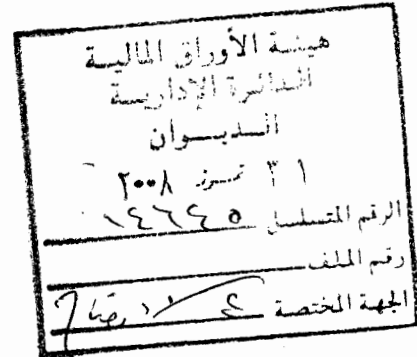 هيئة الأوراق المالية
الدائرة الإدارية
الديوان
٣١ تموز ٢٠٠٨
الرقم المتسلسل ١٤٦٤٥
رقم الملف
الجهة المختصة